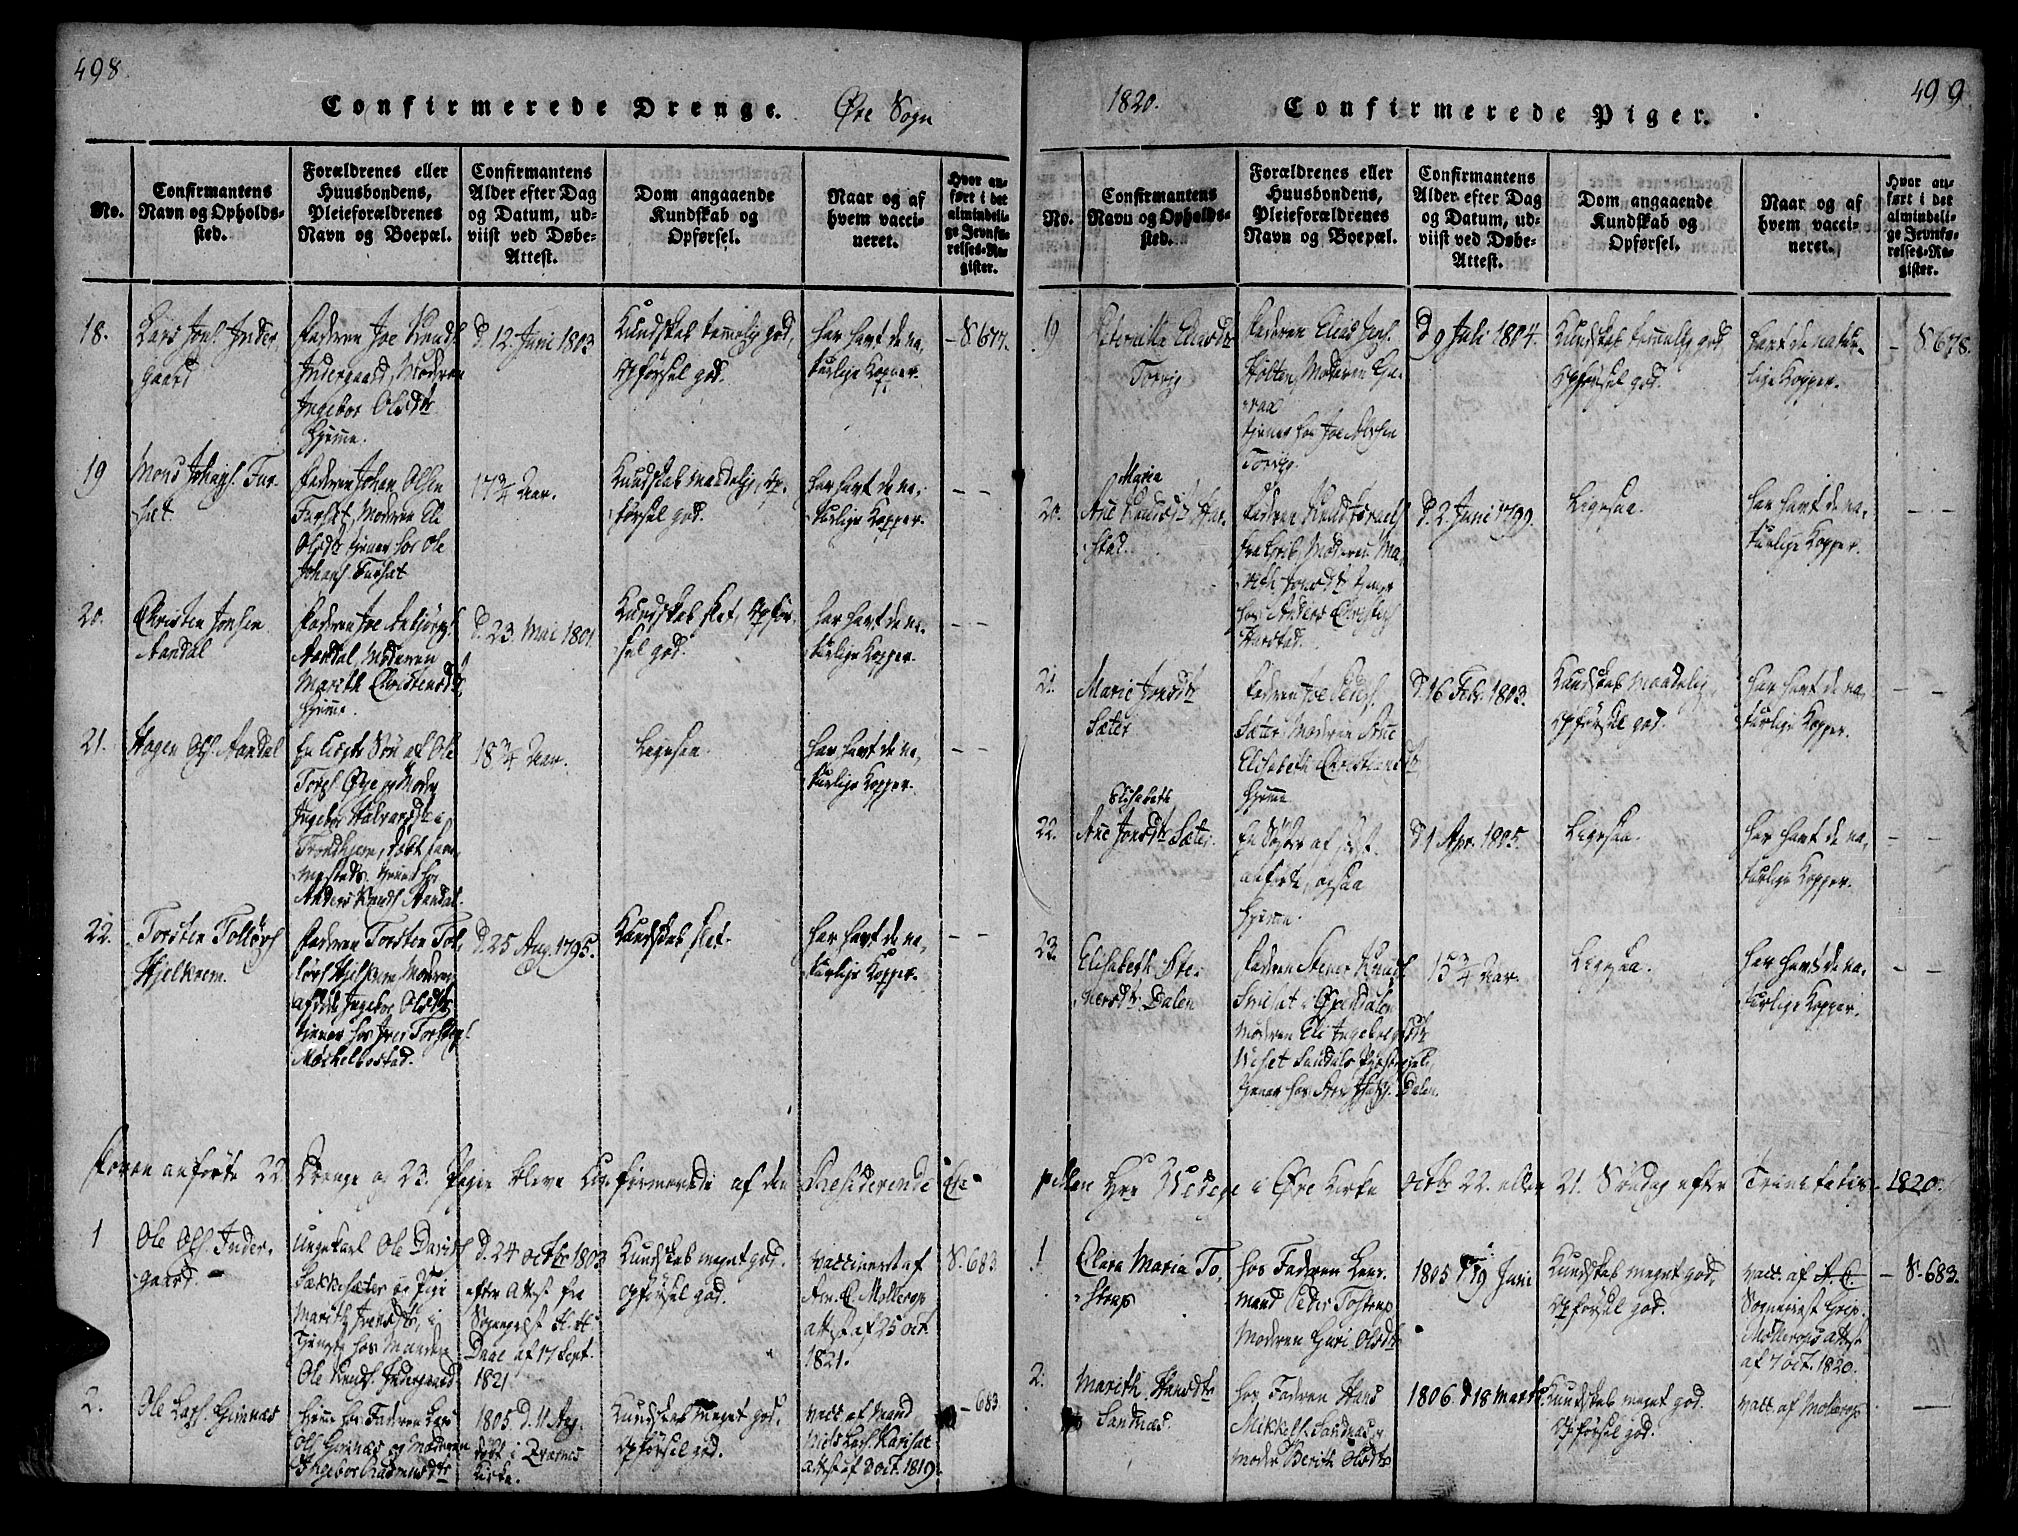 498.
Confirmerede Drenge. Øre Sogn
No.
Confirmantens
Navn og Opholds-
sted.
Forældrenes eller
Huusbondens,
Pleieforældrenes
Navn og Boepæl.
Confirmantens
Alder efter Dag
og Datum, ud-
viist ved Døbe-
Attest.
Dom angaaende
Kundskab og
Opførsel.
Naar og af
hvem vacci-
neret.
Hvor an-
ført i det
almindeli-
ge Jevnfø-
relses-Re-
gister.
18.
Lars Joh. Inder-
gaard
Faderen Joe Knuds.
Indergaard, Moderen
Ingebor Olsdtr
hjemme.
d. 12 Juni 1803
Kundskab temelig god,
Opførsel god.
har havt de na-
turlige Kopper.
- S. 677.
19
Mons Johans. Fur-
sæt.
Faderen Johan Olsen
Furset, Moderen Eli
Olsdtr tjener hos Ole
Johans. Furset
17 3/4 Aar.
Kundskab maadelig, Op-
førsel god.
har havt de na-
turlige Kopper.
- -
20.
Christen Jonsen
Aandal
Faderen Joe
Aandal, Moderen
Marith Christensdtr,
hjemme.
d. 23. Mai 1801.
Kundskab slet, Opfør-
sel god.
har havt de na-
turlige Kopper.
- -
21.
Hagen Ols. Aandal
En uægte Søn af Ole
Tors. Øye og Moder
Ingebor Halvardsd. i
Trondhjem, døbt sam-
mesteds. tjener hos
Anders Knuds. Aandal.
18 3/4 Aar.
Ligesaa.
har havt de na-
turlige Kopper.
- -
22.
Torsten
Hjelkrem.
Faderen Torsten
Hjelkrem Moderen
afdøde Ingebor Olsdtr
tjener hos Iver
Meskelbostad.
d. 25 Aug. 1795.
Kundskab slet.
har havt de na-
turlige Kopper.
- -
Foran anførte 22 Drenge og 23. Piger bleve Confirmerede af den Residerende Ca-
1
Ole Ols. Inder-
gaard. -
Ungekarl Ole Davids.
Bakkesæter og Pige
Marith, i
Tjeneste hos Manden
Ole Knuds. Indergaard
d. 24 octbr 1803
efter Attest fra
Sognepræst H. H.
Daae af 17 Sept.
1821
Kundskab meget god.
Opførsel god.
vaccineret af
C. Møllerop
attest af 25 oct.
1821.
S. 683
2.
Ole Lars. Gimnæs
hjemme hos Faderen Lars
Ols. Gimnæs og Moderen
Ingebor Rasmusdtr
1805 d. 11 Aug.
døbt i Qvernæs
Kirke.
Kundskab meget god.
Opførsel god.
vacc. af Mand
Niels Lars.
attest af 3 oct. 1819.
- 683
1820. Confirmerede Piger. 499
No.
Confirmantens
Navn og Opholds-
sted.
Forældrenes eller
Huusbondens,
Pleieforældrenes
Navn og Boepæl.
Confirmantens
Alder efter Dag
og Datum, ud-
viist ved Døbe-
Attest.
Dom angaaende
Kundskab og
Opførsel.
Naar og af
hvem vacci-
neret.
Hvor an-
ført i det
almindeli-
ge Jevnfø-
relses-Re-
gister.
19
Petronille Eliasdtr
Torvig
Faderen Elias Jens.
Holten, Moderen
tjener hos Joe
Torvig.
d 9 Juli 1804.
Kundskab temmelig god,
Opførsel god.
havt de natur-
lige Kopper.
- S. 678.
20.
Maria
Ane Knudsdtr Har-
stad.
Faderen Knud
fra Grib Moderen Ma-
rith Jonsdtr tjener
hos Anders Christens.
Harstad.
d. 2 Juni 1799.
Ligesaa.
har havt de na-
turlige Kopper.
- -
21.
Marie Jonsdtr
Sæter
Faderen Joe Peders.
Sæter, Moderen Ane
Elisabeth Christiansdtr
hjemme
d. 16 Feb. 1803.
Kundskab maadelig,
Opførsel god.
har havt de na-
turlige Kopper.
- -
22.
Elisabeth
Ane Jonsdtr Sæter.
En Søster af sidst-
anførte, ogsaa
hjemme.
d 1 Apr. 1805.
Ligesaa.
har havt de na-
turlige Kopper.
- -
23.
Elisabeth Ste-
nersdtr Dalen
Faderen Stener Knuds.
i Øxendalen
Moderen Eli Ingebrigtsdtr
Sundals Præstegield,
tjener hos Dalen.
15 3/4 Aar.
Ligesaa.
har havt de na-
turlige Kopper.
- -
pellan Hr. i Øre Kirke octbr 22. eller 21. Søndag efter Trinitatis 1820.
1.
Clara Maria To-
strup
hos Faderen Lens-
mand Peder Tostrup
Moderen Guri Olsdtr
1805 d 19 Juni
Kundskab meget god,
Opførsel god.
vacc. af
Sognepræst Grip.
Møllerops attest
af 7 oct. 1820.
- S. 683.
2.
Marith Hansdtr
Sandnæs.
hos Faderen Hans
Mikkels. Sandnæs,
Moder Berith Olsdtr
1806. d 18 Marts
Kundskab meget god.
Opførsel god.
vacc. af Møllerop
-